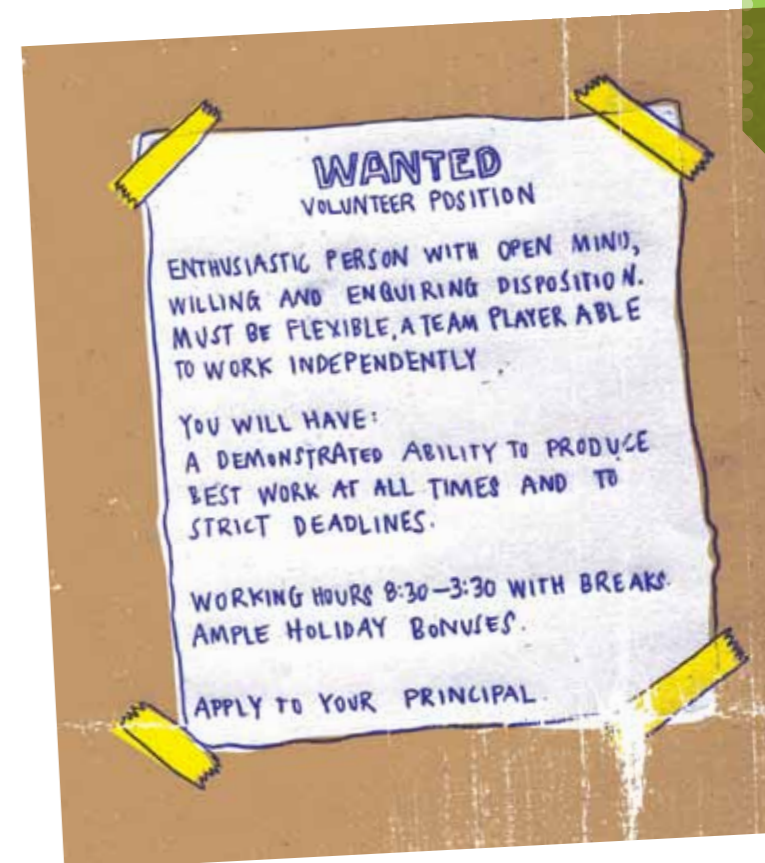 WANTED
VOLUNTEER POSITION
ENTHUSIASTIC PERSON WITH OPEN MIND,
WILLING AND ENQUIRING DISPOSITION.
MUST BE FLEXIBLE, A TEAM PLAYER ABLE
TO WORK INDEPENDENTLY.
YOU WILL HAVE:
A DEMONSTRATED ABILITY TO PRODUCE
BEST WORK AT ALL TIMES AND TO
STRICT DEADLINES.
WORKING HOURS 8:30–3:30 WITH BREAKS.
AMPLE HOLIDAY BONUSES.
APPLY TO YOUR PRINCIPAL.